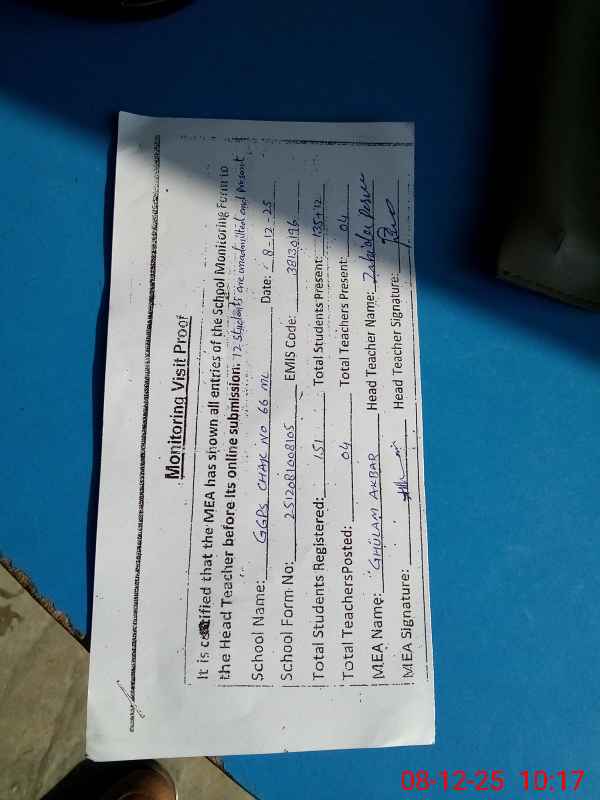 Monitoring Visit Proof
It is certified that the MEA has shown all entries of the School Monitoring Form to
the Head Teacher before its online submission. 12 students are unadmitted and present
School Name: GGPS CHAK NO 66 ML Date: 8-12-25
School Form No: 2512081008105 EMIS Code: 38130196
Total Students Registered: 151 Total Students Present: 135+12
Total TeachersPosted: 04 Total Teachers Present: 04
MEA Name: GHULAM AKBAR Head Teacher Name:
MEA Signature: Head Teacher Signature:
08-12-25 10:17